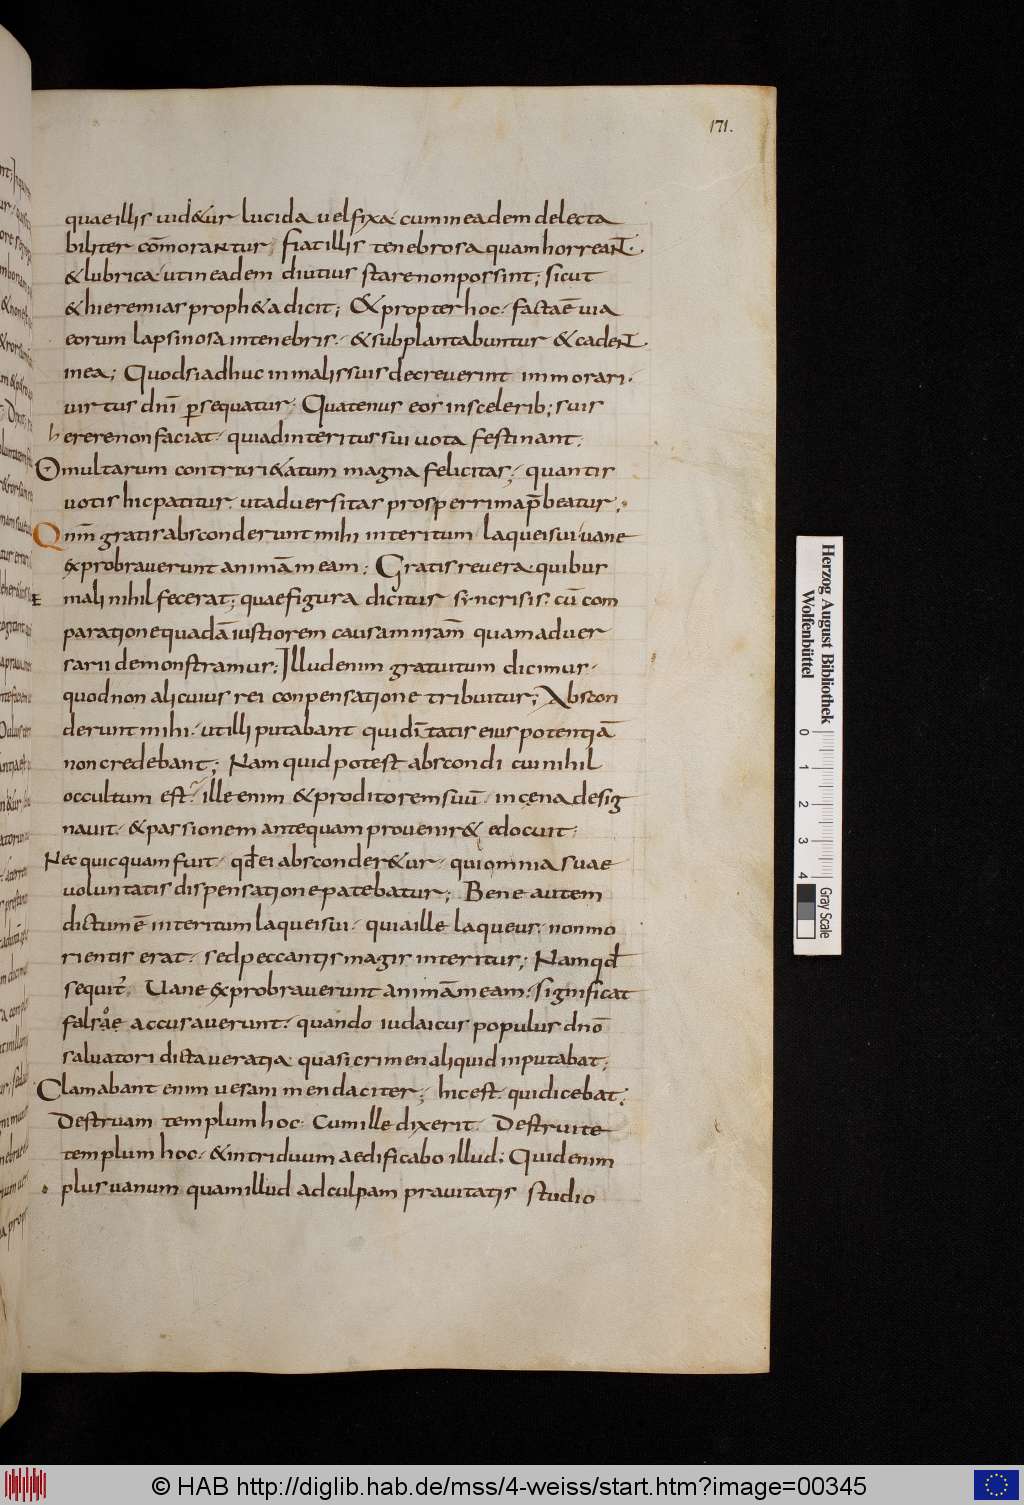 171.
quae illis uid&ur lucida uel fixa cum in eadem delecta
biliter cōmorantur, fiat illis tenebrosa quam horreant̄.
& lubrica ut in eadem diutius stare non possint; sicut
& hieremias proph&a dicit; & propter hoc facta ē uia
eorum lapsinosa in tenebris. & subplantabuntur & cadent̄
in ea; Quod si adhuc in malis suis decreuerint inmorari.
uirtus dnī ꝑsequatur. Quatenus eos in scelerib; suis
herere non faciat. qui ad interitus sui uota festinant;
O multarum contrituri&atum magna felicitas; quantis
uotis hic patitur. ut aduersitas prosperrima p̄beatur;
Qnm̄ gratis absconderunt mihi interitum laquei sui uane
exprobrauerunt animā meam; Gratis reuera quibus
mali nihil fecerat; quae figura dicitur syncrisis. cū com
paratione quadā iustiorem causam nr̄am quam aduer
sarii demonstramus; Illud enim gratuitum dicimus.
quod non alicuius rei conpensatione tribuitur; Abscon
derunt mihi. ut illi putabant qui diūtatis eius potentiā
non credebant; Nam quid potest abscondi cui nihil
occultum est. ille enim & proditorem suū. in cena desig
nauit. & passionem antequam prouenir& edocuit;
Nec quicquam fuit. qd̄ ei absconder&ur. qui omnia suae
uoluntatis dispensatione patebatur; Bene autem
dictum ē interitum laquei sui. quia ille laqueus. non mo
rientis erat. sed peccantis magis interitus; Nam qd̄
sequit̄. Uane exprobrauerunt animā meam. significat
falsae accusauerunt. quando iudaicus populus dnō
saluatori dicta ueratia quasi crimen aliquid inputabat;
Clamabant enim uesani mendaciter; hic est. qui dicebat;
Destruam templum hoc. Cum ille dixerit. Destruite
templum hoc. & in triduum aedificabo illud; Quid enim
plus uanum quam illud ad culpam prauitatis studio
Herzog August Bibliothek
Wolfenbüttel
0 1 2 3 4
Gray Scale
© HAB http://diglib.hab.de/mss/4-weiss/start.htm?image=00345